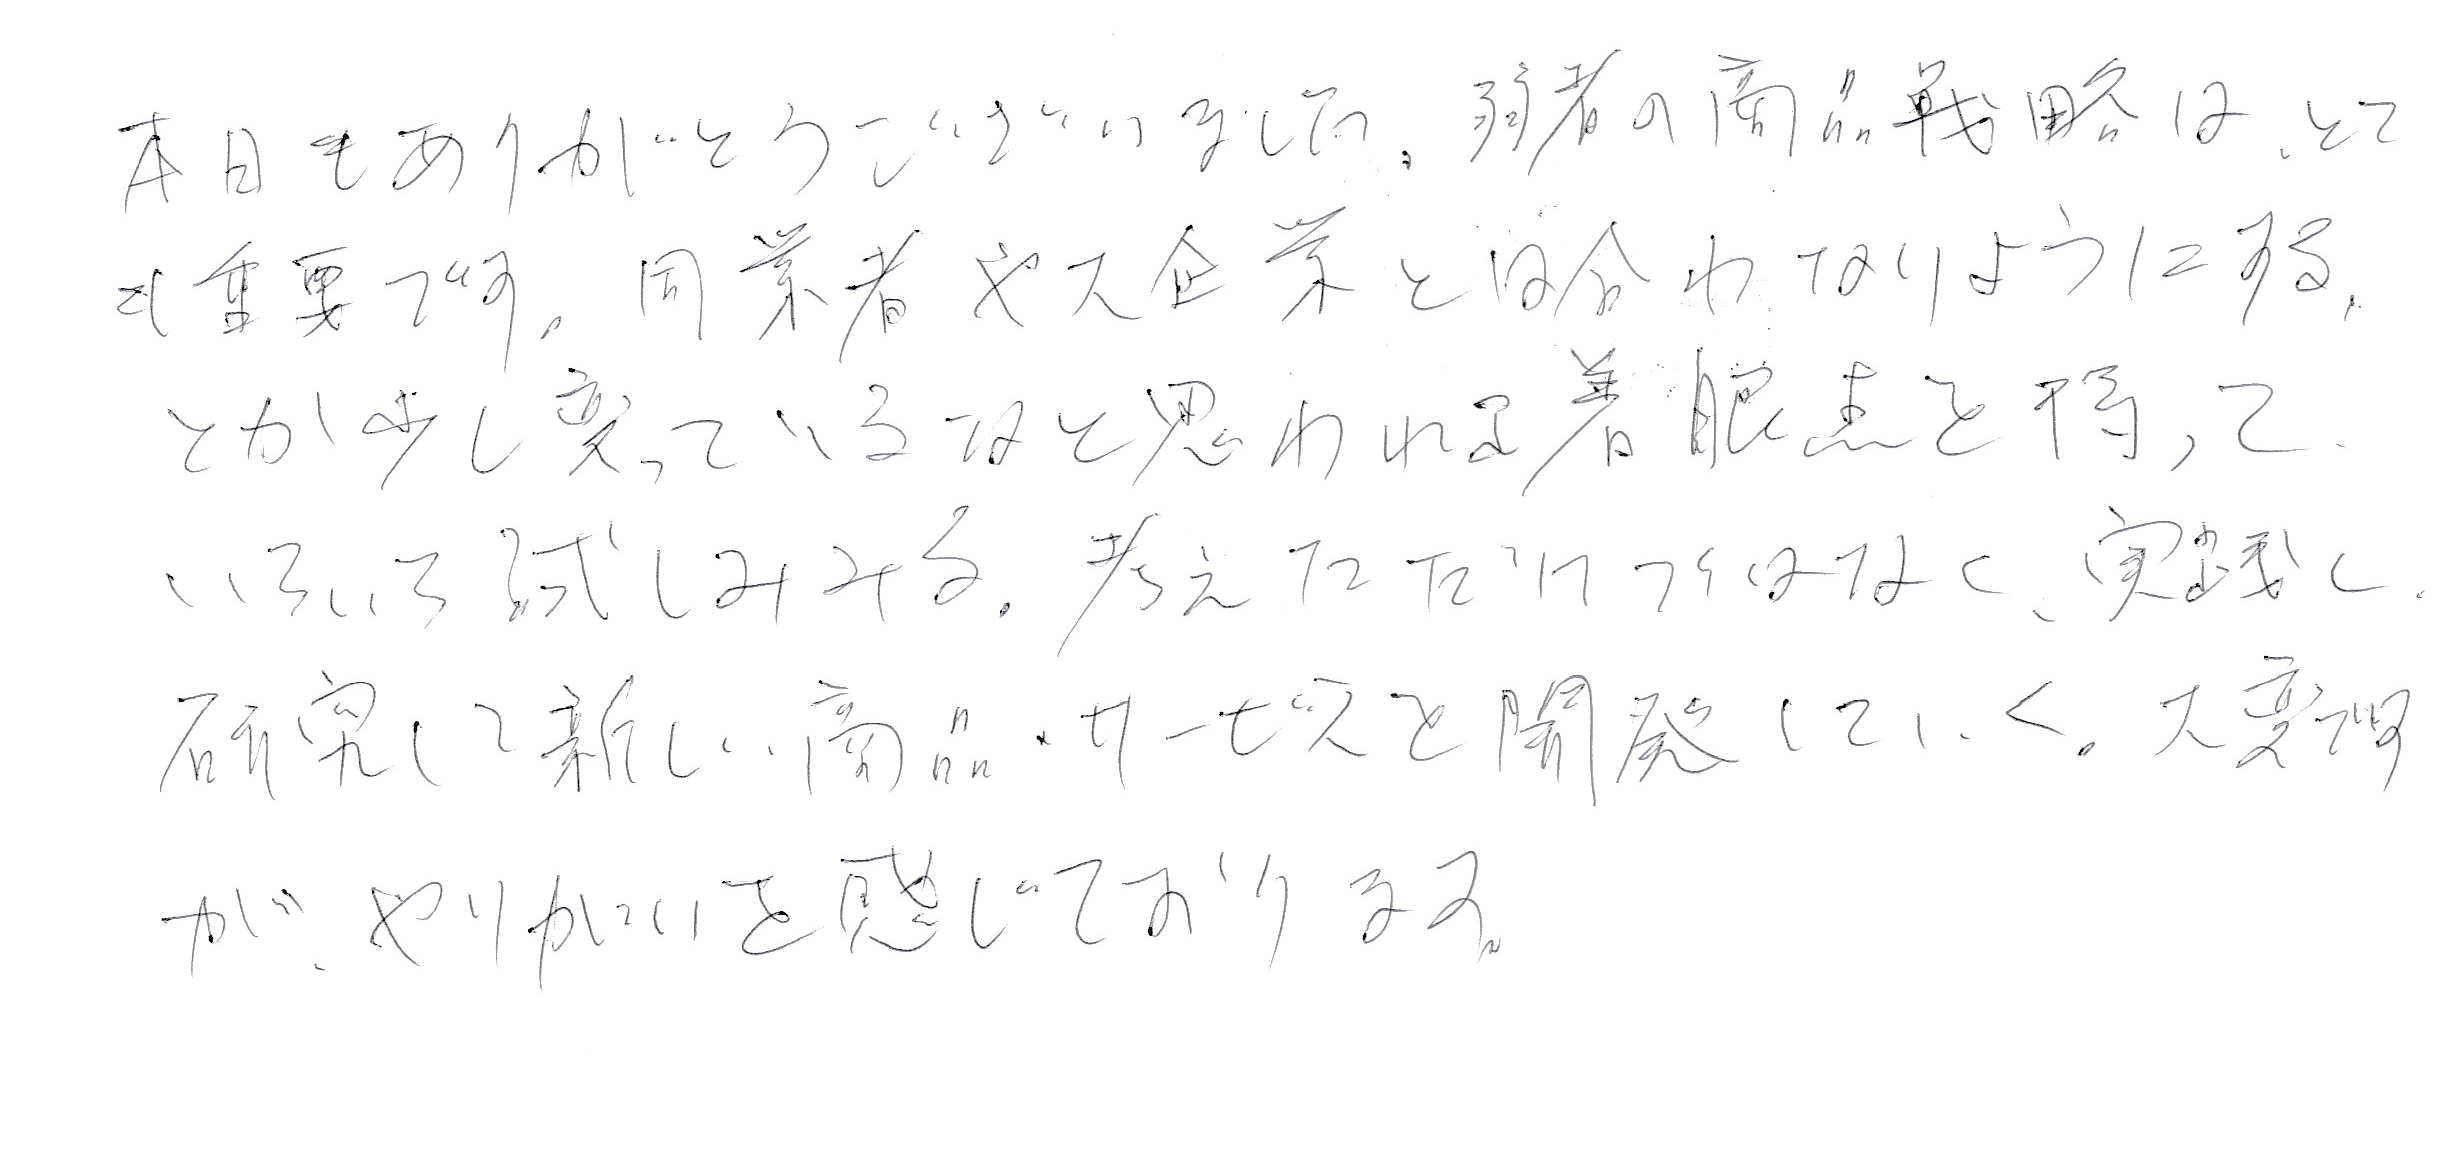 本日もありがとうございました。弱者の商品戦略は、とて
も重要です。同業者や大企業とは合わないようにする、
とか少し変っているなと思われる着眼点を持って、
いろいろ試しみみる。考えただけではなく、実践し、
研究して新しい商品・サービスを開発していく。大変です
が、やりがいを感じております。